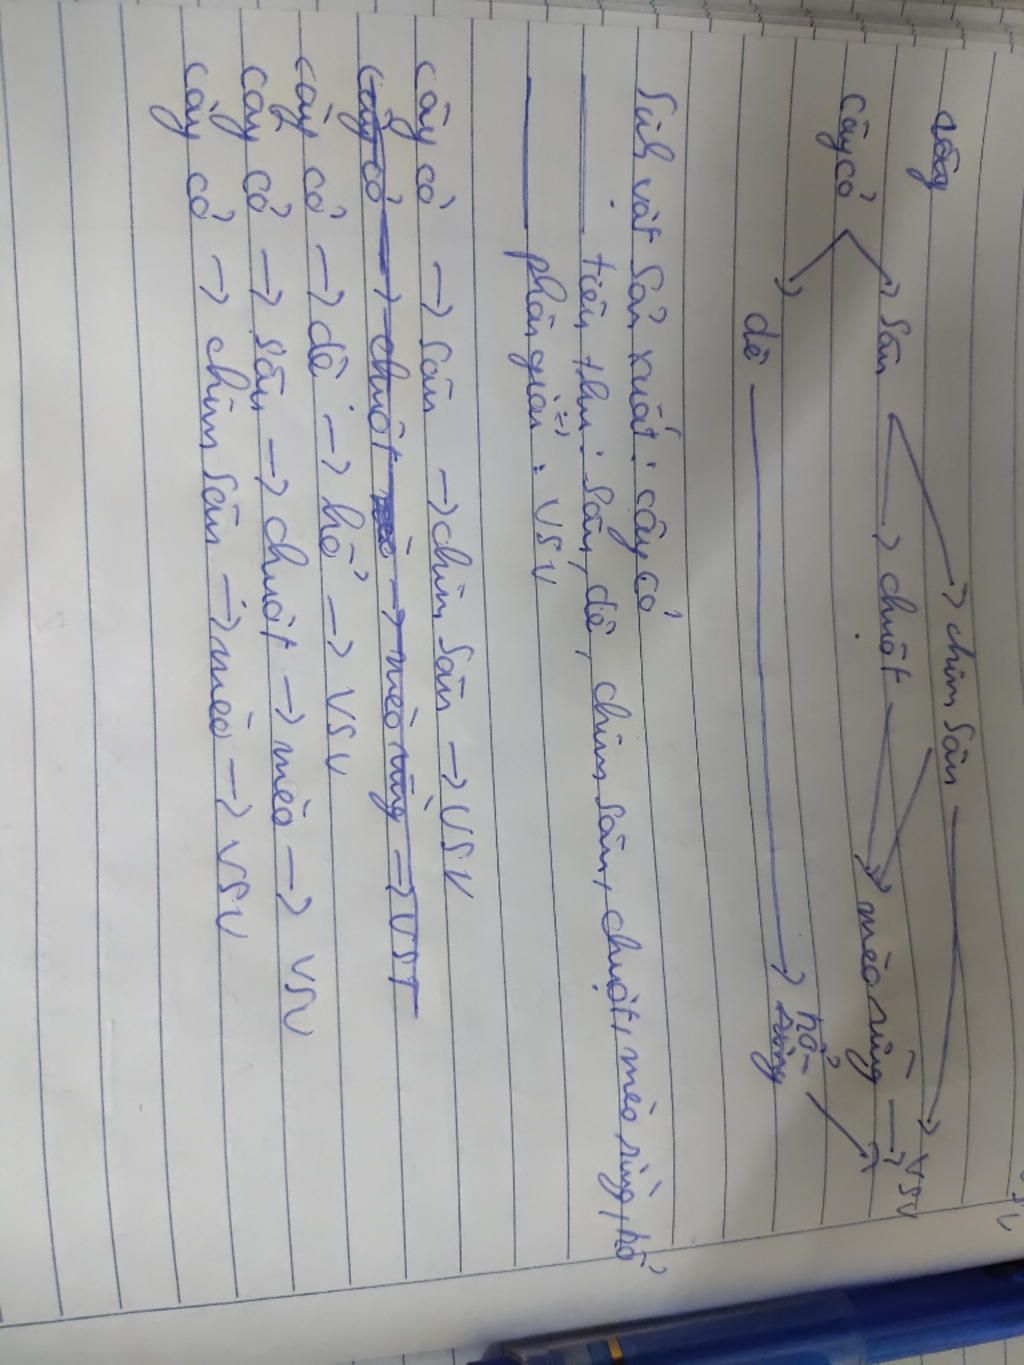 cây cỏ
sâu
chim sâu
chuột
mèo rừng
VSV
dê
hổ
Sinh vật sản xuất: cây cỏ
tiêu thụ: sâu, dê, chim sâu, chuột, mèo rừng, hổ
phân giải: VSV
cây cỏ → sâu → chim sâu → VSV
cây cỏ → chuột → mèo rừng → VST
cây cỏ → dê → hổ → VSV
cây cỏ → sâu → chuột → mèo → VSV
cây cỏ → chim sâu → mèo → VSV